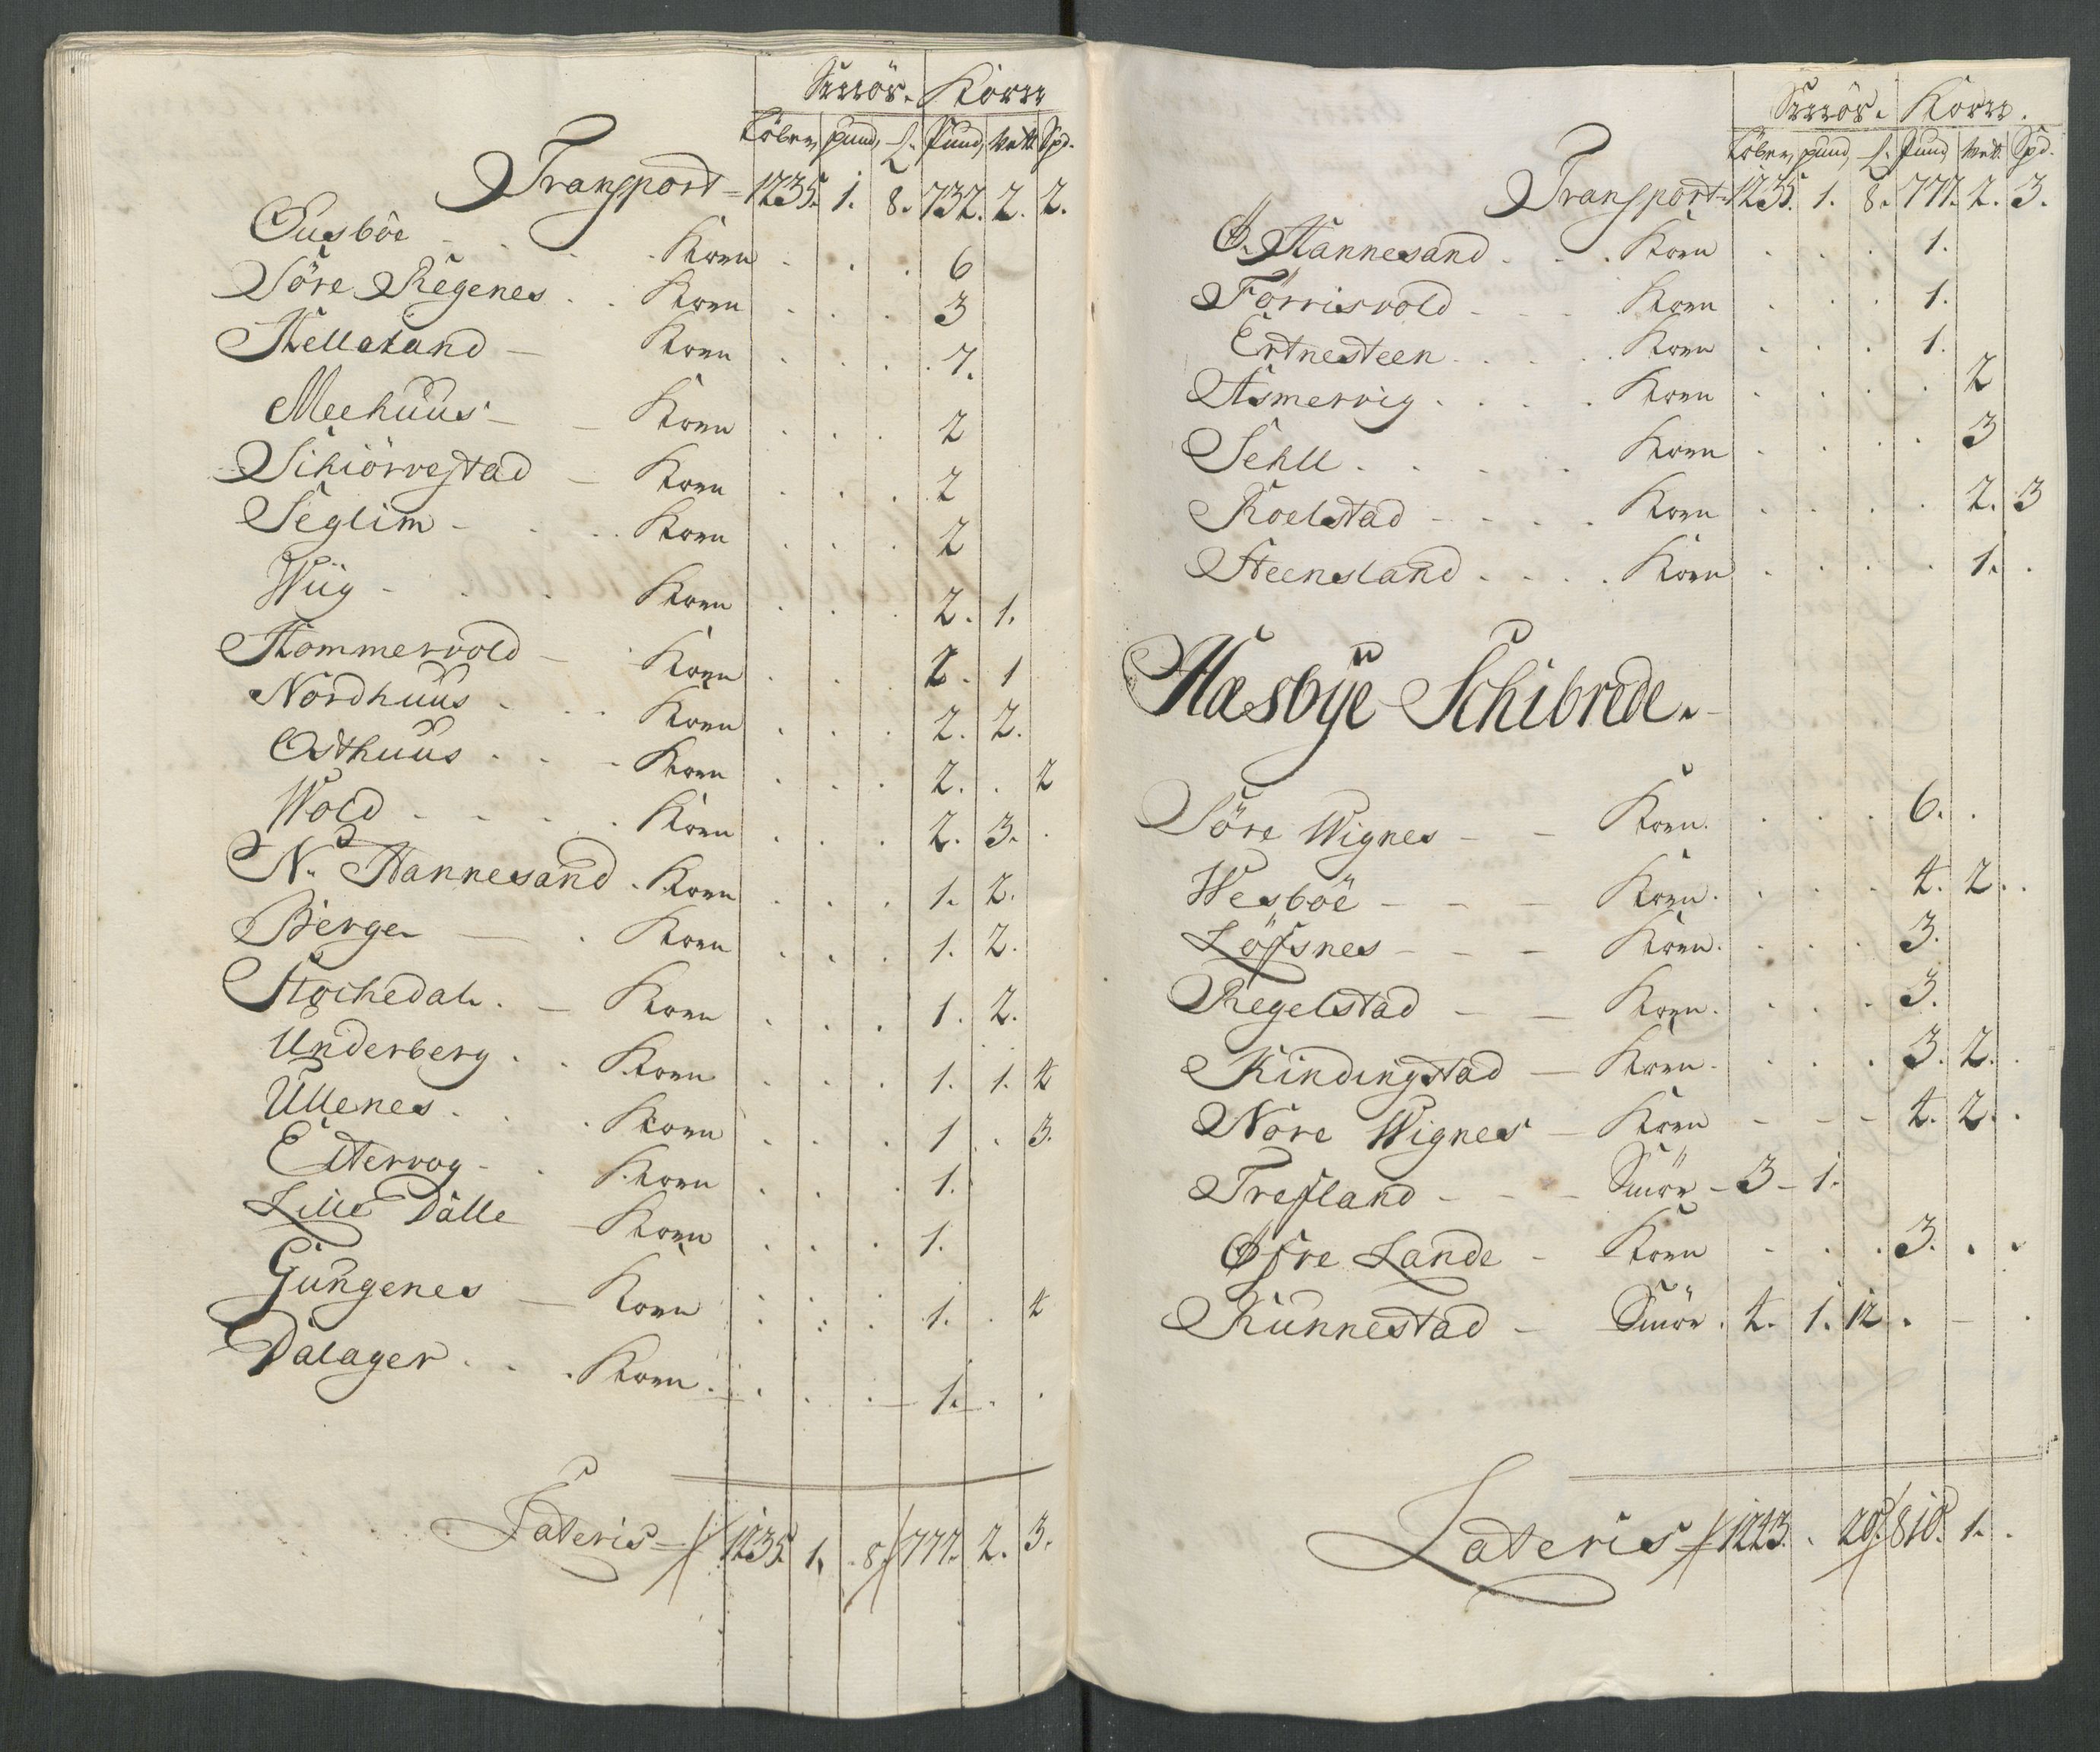 Smör. Korn
Löber, pund, f. Pund, Vett. Spd.
Transport = 1235. 1. 8. 732. 2. 2.
Gusböe - Korn 6
Söre Regenes . . Korn 3
Helleland - Korn 7.
Meehuus - - Korn 2
Schiörvestad - Korn 2
Seglim - . . Korn 2
Wiig - . . Korn 2. 1.
Hommervold - Korn 2. 1
Nordhuus . . . Korn 2. 2.
Osthuus . . - Korn 2. . 2
Wold . . . . Korn 2. 3.
N. Hannesand . Korn 1. 2.
Berge - . Korn 1. 2.
Stochedal. - Korn 1. 2.
Underberg . . Korn 1. 1. 4
Ullenes . . . Korn 1 . 3.
Eitervog - . Korn 1.
Lille Dalle - Korn 1.
Gungenes - Korn 1. . 4
Dalager . . . Korn . 1. . .
Lateris = 1235. 1. 8. 777. 2. 3.
Smör. Korn.
Löber, pund, f. Pund, Vett. Spd.
Transport = 1235. 1. 8. 777. 2. 3.
Ö. Hannesand . . . Korn 1.
Förrisvold - . . Korn 1.
Ertnesteen . . . . Korn 1.
Asmervig . . . . Korn 2
Sehll . . . . Korn 3
Roelstad - . . . Korn 2. 3
Steensland . . . . Korn 1. .
Hasbÿe Schibrede.
Söre Wignes - - Korn. 6. .
Wesböe - - - Korn. 4. 2. .
Löfsnes - - - Korn. 3.
Regelstad - - Korn. 3.
Kindingstad - Korn. 3. 2. .
Nore Wignes - Korn - - - 4. 2. .
Trefland - - - Smör - 3 - 1.
Øfre Lande - Korn . . . 3. . .
Runnestad - Smör . 4. 1. 12 . - .
Lateris = 1243. . 20. 810. 1. .